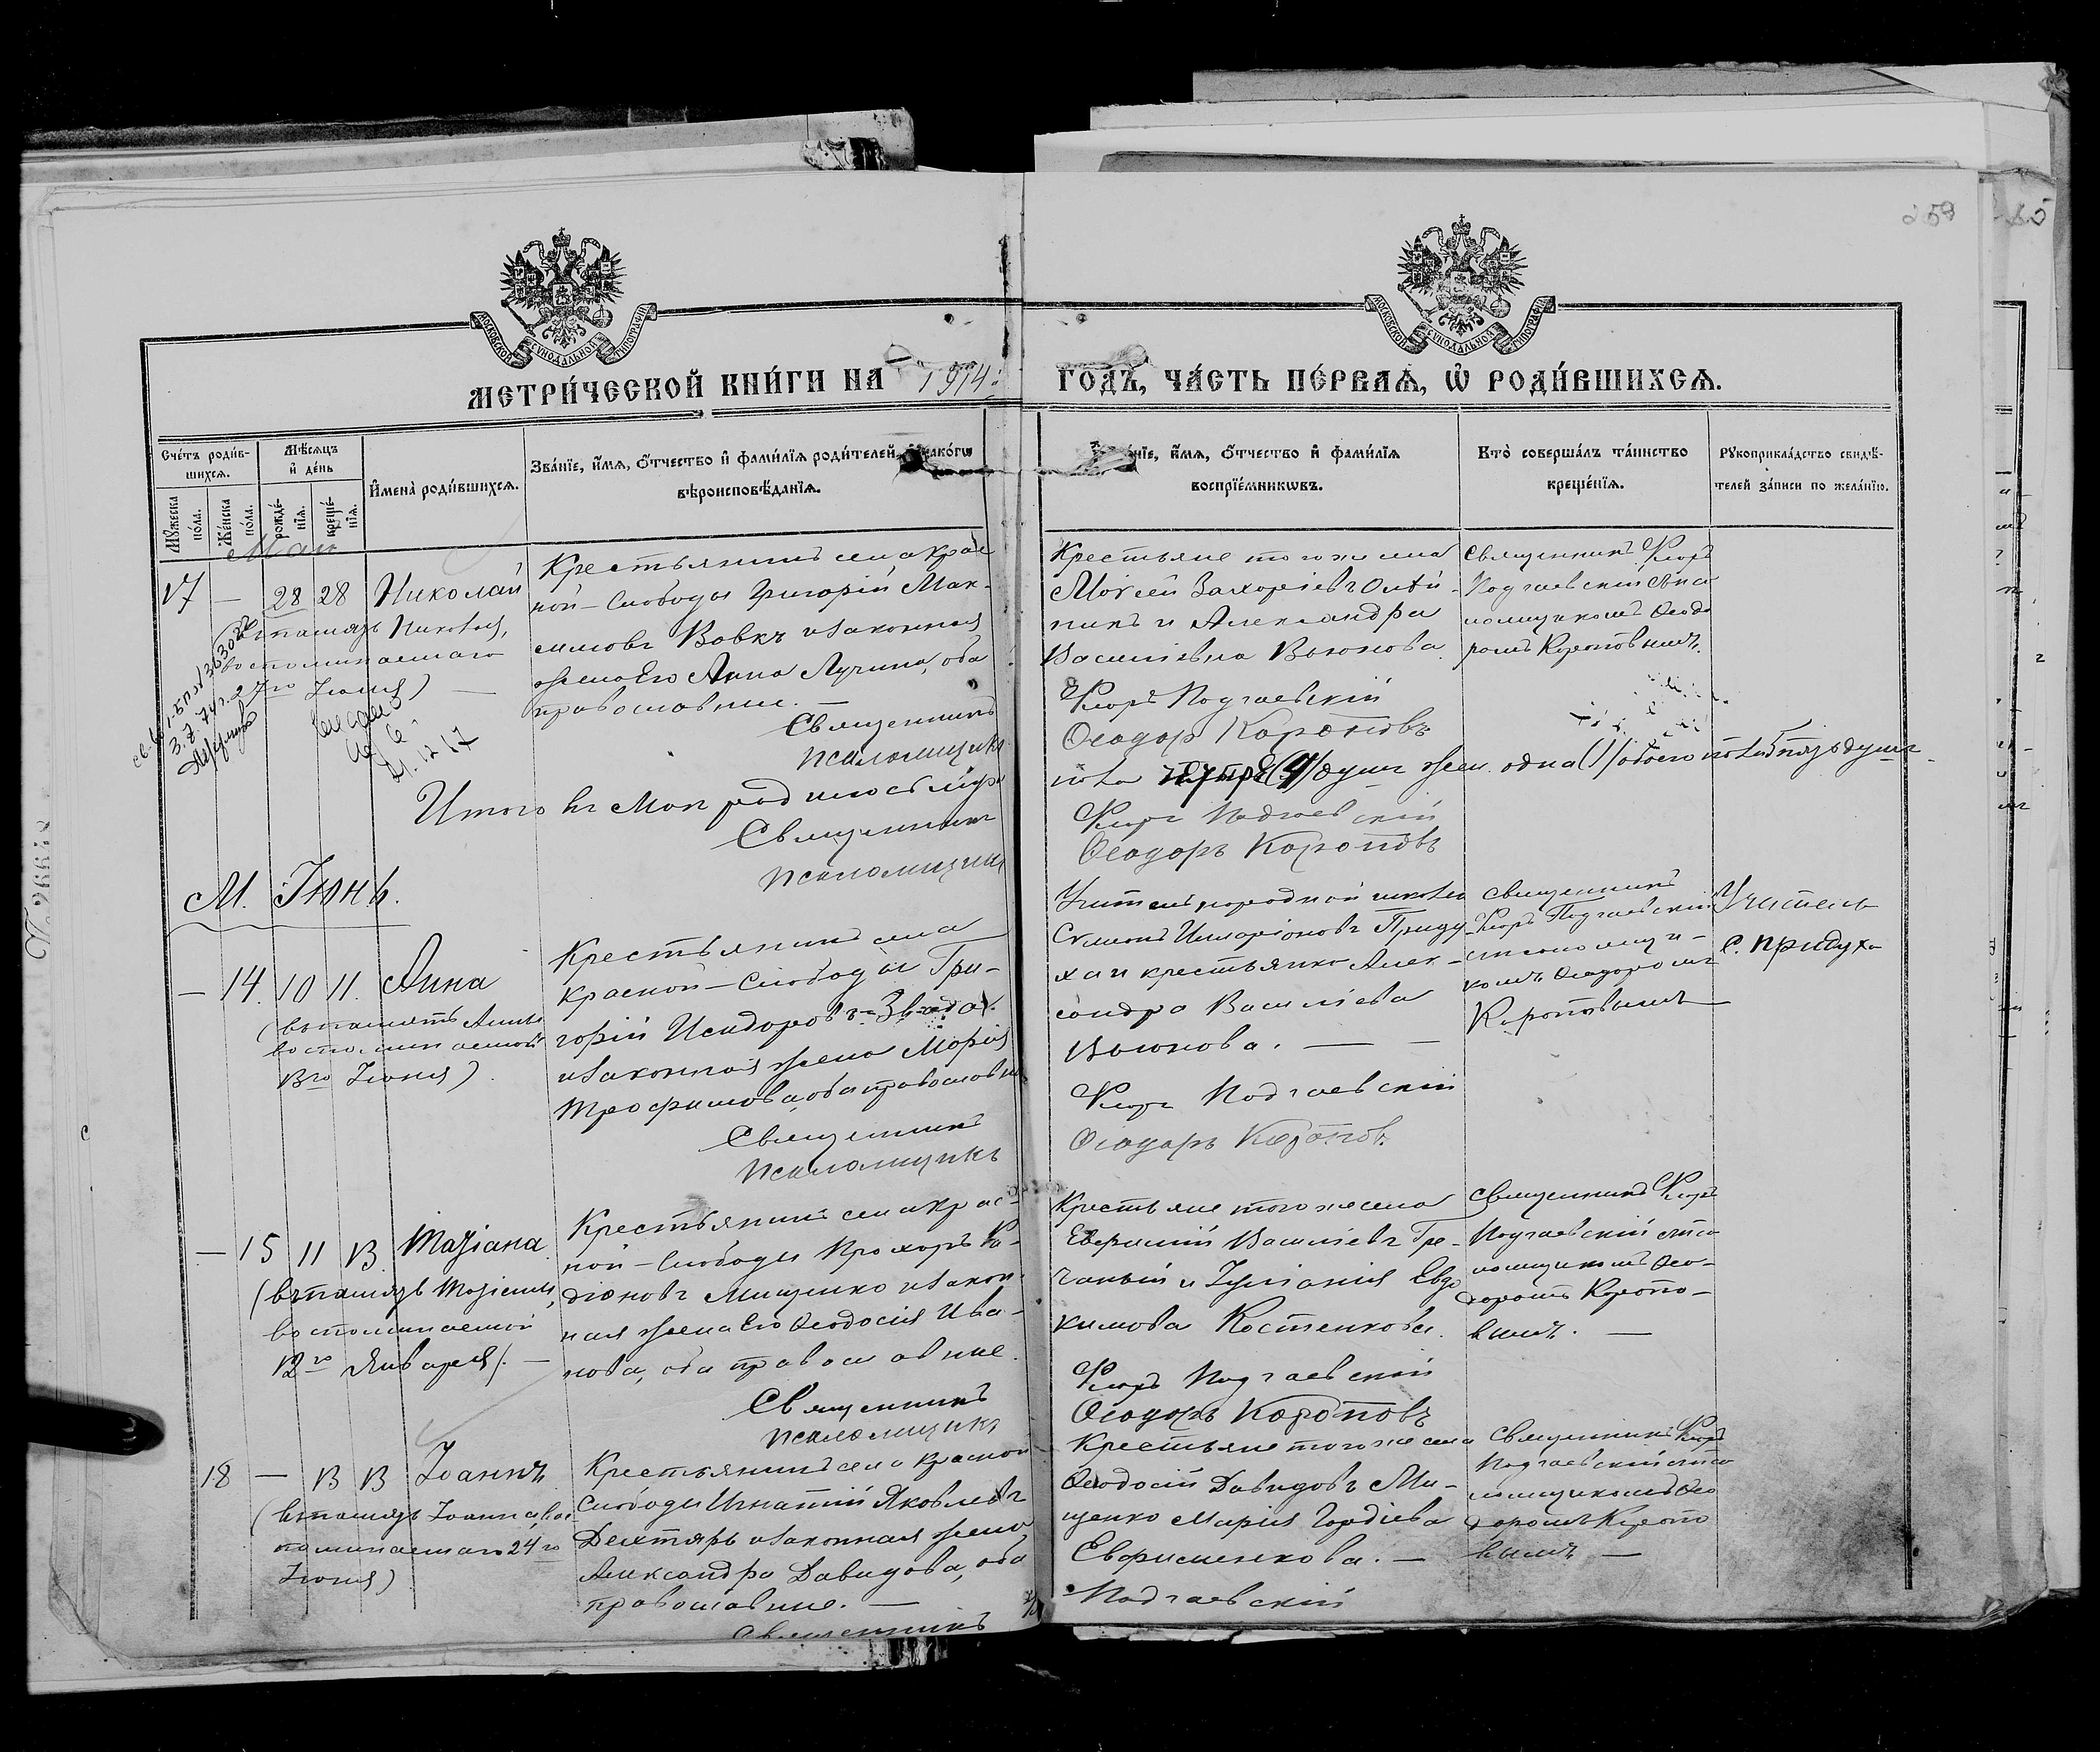 259
МОСКОВСКОЙ СѴНОДАЛЬНОЙ ТИПОГРАФІИ
МОСКОВСКОЙ СѴНОДАЛЬНОЙ ТИПОГРАФІИ
МЕТРИ́ЧЕСКОЙ КНИ́ГИ НА 1914
ГОДЪ, ЧА́СТЬ ПЕ́РВАѦ, Ѡ҆ РОДИ́ВШИХСѦ.
Сче́тъ роди́в-
шихсѧ.
Мꙋ́жеска по́ла.
Же́нска по́ла.
Мѣ́сѧцъ
и҆ де́нь
рожде́-
нїѧ.
креще́-
нїѧ.
И҆мена̀ роди́вшихсѧ.
Зва́нїе, и҆́мѧ, ѻ҆́тчество и҆ фами́лїѧ роди́телей, и҆ како́гѡ
вѣроисповѣ́данїѧ.
нїе, и҆́мѧ, ѻ҆́тчество и҆ фами́лїѧ
воспрїе́мникѡвъ.
Кто̀ соверша́лъ та́инство
креще́нїѧ.
Рꙋкоприкла́дство свидѣ́-
телей за́писи по жела́нїю.
Май
17 — 28 28 Николай
(въ память Николая,
воспоминаемаго
27го Іюня) —
Крестьянинъ села Крас
ной-Слободы Григорій Мак-
симовъ Вовкъ и законная
жена его Анна Лучина, оба
православные. —
Священникъ
Псаломщикъ
Крестьяне того же села
Моѵсей Захаріевъ Олѣй-
никъ и Александра
Василіевна Вьюнова.
Флоръ Подгаевскій
Ѳеодоръ Коротовъ
Священникъ Флоръ
Подгаевскій съ пса
ломщикомъ Ѳеодо
ромъ Коротовымъ.
Итого въ Маѣ родилось муж
пола (4) душ жен. одна (1) обоего пола пять душъ
Священникъ
Псаломщикъ
Флоръ Подгаевскій
Ѳеодоръ Коротовъ
М. Іюнь.
— 14. 10 11. Анна
(въ память Анны
воспоминаемой
13го Іюня).
Крестьянинъ села
Красной-Слободы Гри-
горій Исидоровъ
и законная жена Марія
Трофимова, оба православн
Священникъ
Псаломщикъ
Учитель народной школы
Сѵмеонъ Иларіоновъ Приду-
ха и крестьянка Алек-
сандра Василіева
Вьюнова. — —
Флоръ Подгаевскій
Ѳеодоръ Коротовъ
Священникъ
Флоръ Подгаевскій
съ псаломщи-
комъ Ѳеодоромъ
Коротовымъ
Учитель
С. Придуха
— 15 11 13 Татіана
(въ память Татіаны,
воспоминаемой
12го Января). —
Крестьянинъ села Крас-
ной-Слободы Прохоръ Ро-
діоновъ Мищенко и закон-
ная жена его Ѳеодосія Ива-
нова, оба православные.
Священникъ
Псаломщикъ
Крестьяне того же села
Евфимій Василіевъ Гре-
чаный и Іуліанія Евдо
кимова Костенкова.
Флоръ Подгаевскій
Ѳеодоръ Коротовъ
Священникъ Флоръ
Подгаевскій съ пса
ломщикомъ Ѳео-
доромъ Корото-
вымъ. —
18 — 13 13 Іоаннъ
(въ память Іоанна, вос-
поминаемаго 24го
Іюня)
Крестьянинъ села Красной
Слободы Игнатій Яковлевъ
Дехтярь и законная жена
Александра Давидова, оба
православные. —
Священникъ
Крестьяне того же села
Ѳеодосій Давидовъ Ми-
щенко Марія Гордіева
Евфименкова. —
Подгаевскій
Священникъ Флоръ
Подгаевскій съ пса
ломщикомъ Ѳео
доромъ Корото
вымъ —